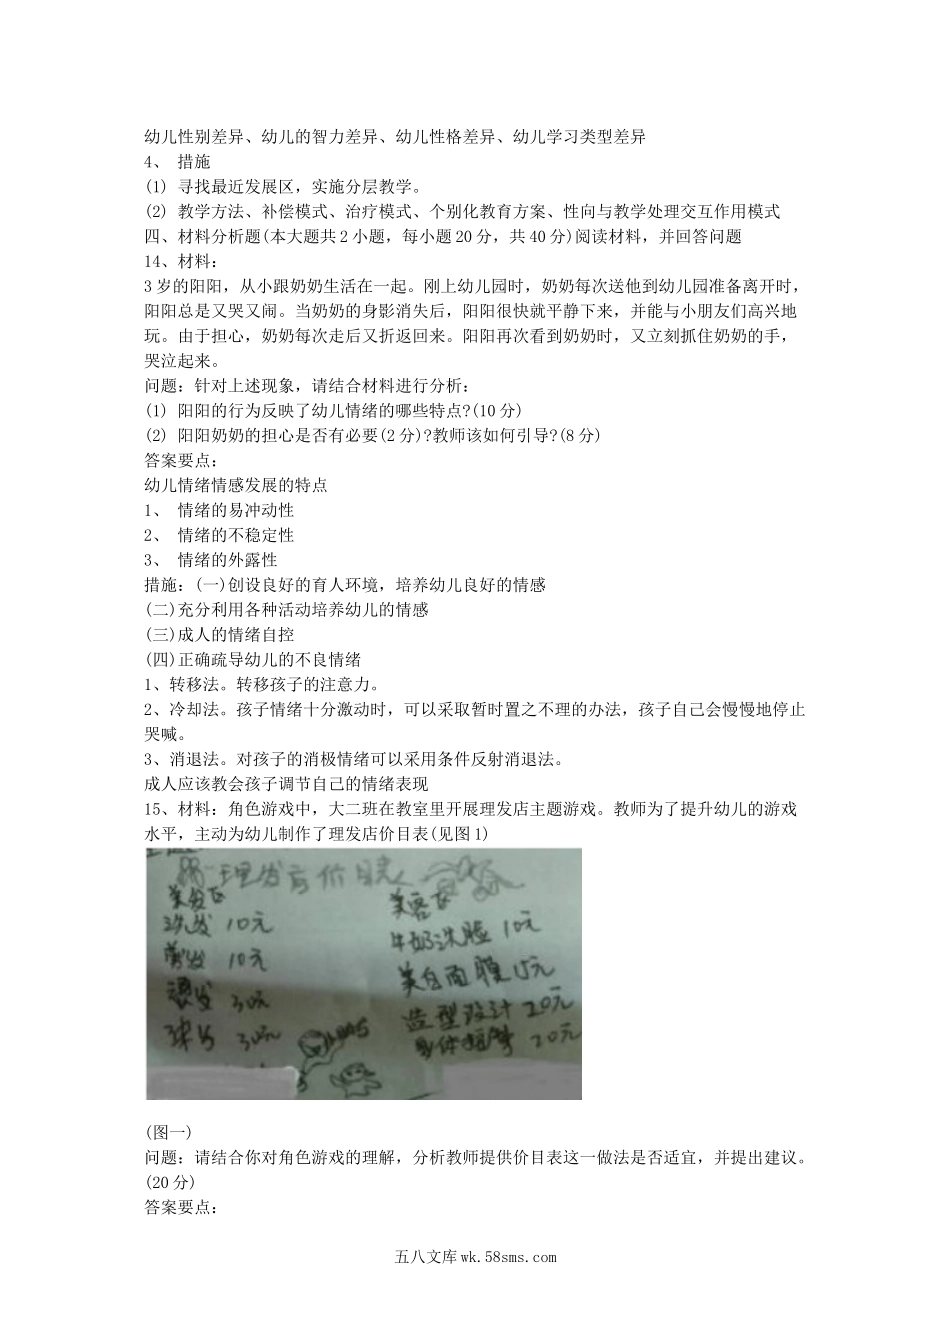 幼儿性别差异、幼儿的智力差异、幼儿性格差异、幼儿学习类型差异
4、 措施
(1) 寻找最近发展区，实施分层教学。
(2) 教学方法、补偿模式、治疗模式、个别化教育方案、性向与教学处理交互作用模式
四、材料分析题(本大题共 2 小题，每小题 20 分，共 40 分)阅读材料，并回答问题
14、材料：
3 岁的阳阳，从小跟奶奶生活在一起。刚上幼儿园时，奶奶每次送他到幼儿园准备离开时，
阳阳总是又哭又闹。当奶奶的身影消失后，阳阳很快就平静下来，并能与小朋友们高兴地
玩。由于担心，奶奶每次走后又折返回来。阳阳再次看到奶奶时，又立刻抓住奶奶的手，
哭泣起来。
问题：针对上述现象，请结合材料进行分析：
(1) 阳阳的行为反映了幼儿情绪的哪些特点?(10 分)
(2) 阳阳奶奶的担心是否有必要(2 分)?教师该如何引导?(8 分)
答案要点：
幼儿情绪情感发展的特点
1、 情绪的易冲动性
2、 情绪的不稳定性
3、 情绪的外露性
措施：(一)创设良好的育人环境，培养幼儿良好的情感
(二)充分利用各种活动培养幼儿的情感
(三)成人的情绪自控
(四)正确疏导幼儿的不良情绪
1、转移法。转移孩子的注意力。
2、冷却法。孩子情绪十分激动时，可以采取暂时置之不理的办法，孩子自己会慢慢地停止
哭喊。
3、消退法。对孩子的消极情绪可以采用条件反射消退法。
成人应该教会孩子调节自己的情绪表现
15、材料：角色游戏中，大二班在教室里开展理发店主题游戏。教师为了提升幼儿的游戏
水平，主动为幼儿制作了理发店价目表(见图 1)
理发店价目表
美发区
洗发 10元
剪发 10元
烫发 30元
染发 30元
美容区
牛奶洗脸 10元
美白面膜 15元
造型设计 20元
身体按摩 20元
(图一)
问题：请结合你对角色游戏的理解，分析教师提供价目表这一做法是否适宜，并提出建议。
(20 分)
答案要点：
五八文库 wk.58sms.com